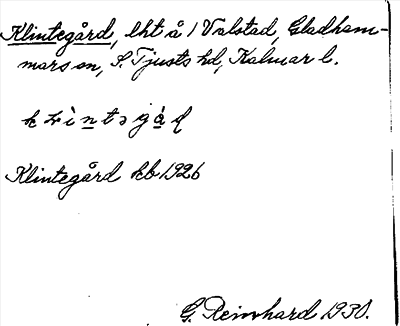 Klintegård, lht å 1 Valstad, Gladham-
mars sn, S. Tjusts hd, Kalmar l.
Klintegård kb 1926
G. Reinhard 1930.